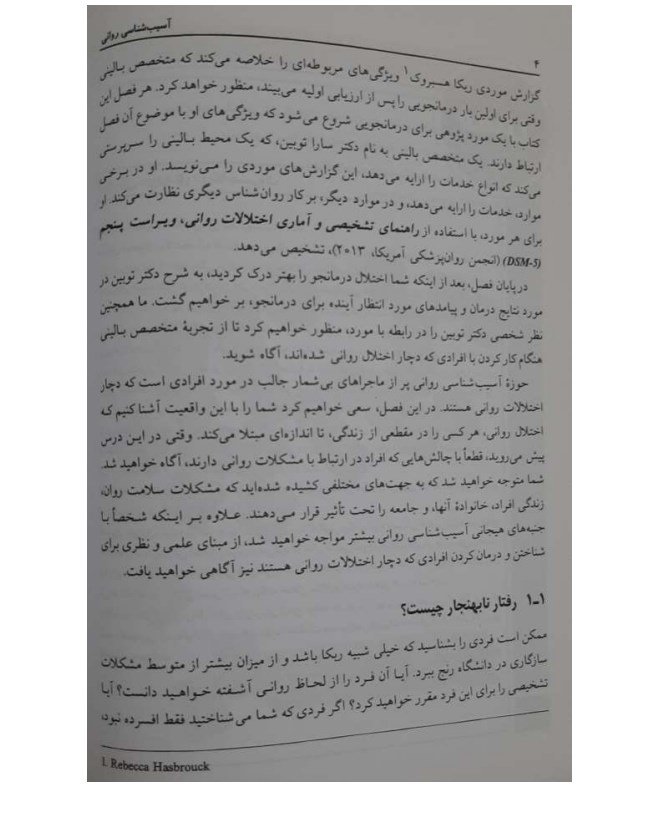 ۴
آسیب‌شناسی روانی
گزارش موردی ریکا هسبروک۱ ویژگی‌های مربوطه‌ای را خلاصه می‌کند که متخصص بالینی
وقتی برای اولین بار درمانجویی را پس از ارزیابی اولیه می‌بیند، منظور خواهد کرد. هر فصل این
کتاب با یک مورد پژوهی برای درمانجویی شروع می‌شود که ویژگی‌های او با موضوع آن فصل
ارتباط دارند. یک متخصص بالینی به نام دکتر سارا توبین، که یک محیط بالینی را سرپرستی
می‌کند که انواع خدمات را ارایه می‌دهد، این گزارش‌های موردی را می‌نویسد. او در برخی
موارد، خدمات را ارایه می‌دهد، و در موارد دیگر، بر کار روان‌شناس دیگری نظارت می‌کند. او
برای هر مورد، با استفاده از راهنمای تشخیصی و آماری اختلالات روانی، ویراست پنجم
(DSM-5) (انجمن روان‌پزشکی آمریکا، ۲۰۱۳)، تشخیص می‌دهد.
در پایان فصل، بعد از اینکه شما اختلال درمانجو را بهتر درک کردید، به شرح دکتر توبین در
مورد نتایج درمان و پیامدهای مورد انتظار آینده برای درمانجو، بر خواهیم گشت. ما همچنین
نظر شخصی دکتر توبین را در رابطه با مورد، منظور خواهیم کرد تا از تجربهٔ متخصص بالینی
هنگام کار کردن با افرادی که دچار اختلال روانی شده‌اند، آگاه شوید.
حوزهٔ آسیب‌شناسی روانی پر از ماجراهای بی‌شمار جالب در مورد افرادی است که دچار
اختلالات روانی هستند. در این فصل، سعی خواهیم کرد شما را با این واقعیت آشنا کنیم که
اختلال روانی، هر کسی را در مقطعی از زندگی، تا اندازه‌ای مبتلا می‌کند. وقتی در این درس
پیش می‌روید، قطعاً با چالش‌هایی که افراد در ارتباط با مشکلات روانی دارند، آگاه خواهید شد.
شما متوجه خواهید شد که به جهت‌های مختلفی کشیده شده‌اید که مشکلات سلامت روان،
زندگی افراد، خانوادهٔ آنها، و جامعه را تحت تأثیر قرار می‌دهند. علاوه بر اینکه شخصاً با
جنبه‌های هیجانی آسیب‌شناسی روانی بیشتر مواجه خواهید شد، از مبنای علمی و نظری برای
شناختن و درمان کردن افرادی که دچار اختلالات روانی هستند نیز آگاهی خواهید یافت.
۱-۱ رفتار نابهنجار چیست؟
ممکن است فردی را بشناسید که خیلی شبیه ریکا باشد و از میزان بیشتر از متوسط مشکلات
سازگاری در دانشگاه رنج ببرد. آیا آن فرد را از لحاظ روانی آشفته خواهید دانست؟ آیا
تشخیصی را برای این فرد مقرر خواهید کرد؟ اگر فردی که شما می‌شناختید فقط افسرده نبود،
1. Rebecca Hasbrouck